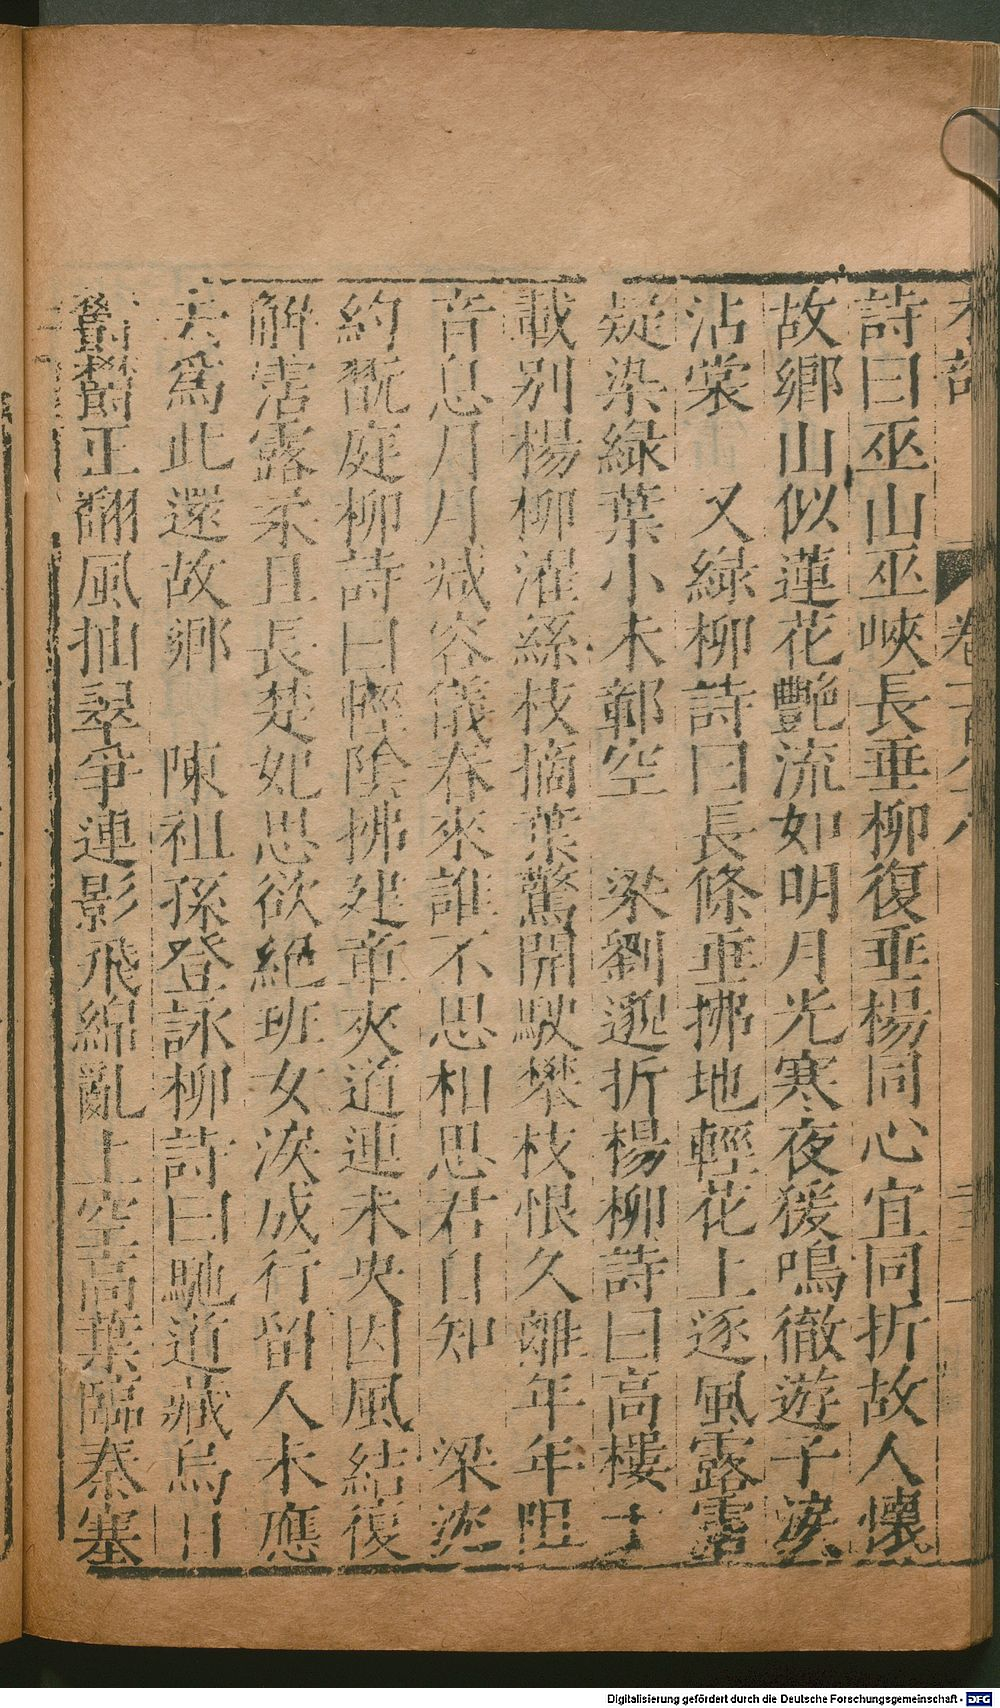 詩曰巫山巫峽長垂柳復垂楊同心宜同折故人懷
故鄉山似蓮花艷流如明月光寒夜猨鳴徹遊子淚
沾裳 又綠柳詩曰長條垂拂地輕花上逐風露霑
疑染綠葉小未鄣空 梁劉邈折楊柳詩曰高樓十
載別楊柳濯絲枝摘葉驚開駛攀枝恨久離年年阻
音息月月減容儀春來誰不思相思君自知 梁沈
約翫庭柳詩曰輕陰拂建章夾道連未央因風結復
解霑露柔且長楚妃思欲絕班女淚成行留人未應
去爲此還故鄉 陳祖孫登詠柳詩曰馳道藏烏日
正翻風抽翠爭連影飛綿亂上空高葉臨秦塞
Digitalisierung gefördert durch die Deutsche Forschungsgemeinschaft - DFG